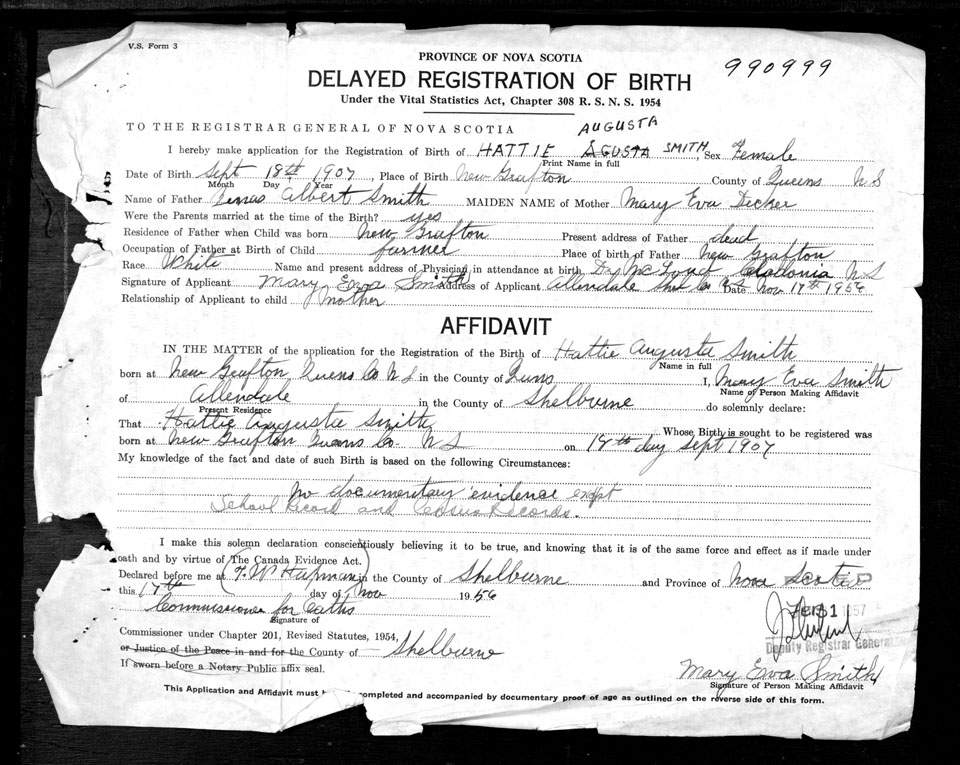 V.S. Form 3
PROVINCE OF NOVA SCOTIA
990999
DELAYED REGISTRATION OF BIRTH
Under the Vital Statistics Act, Chapter 308 R. S. N. S. 1954
TO THE REGISTRAR GENERAL OF NOVA SCOTIA
AUGUSTA
I hereby make application for the Registration of Birth of HATTIE AGUSTA SMITH, Sex Female
Print Name in full
Date of Birth Sept 18th 1907, Place of Birth New Grafton County of Queens N S
Month Day Year
Name of Father Albert Smith MAIDEN NAME of Mother Mary Eva Decker
Were the Parents married at the time of the Birth? yes
Residence of Father when Child was born New Grafton Present address of Father dead
Occupation of Father at Birth of Child farmer Place of birth of Father New Grafton
Race White Name and present address of Physician in attendance at birth Dr N S
Signature of Applicant Mary Eva Smith Address of Applicant Allendale Shel Co N.S Date Nov 17th 1956
Relationship of Applicant to child mother
AFFIDAVIT
IN THE MATTER of the application for the Registration of the Birth of Hattie Augusta Smith
Name in full
born at New Grafton Quens Co N S in the County of Quns I, Mary Eva Smith
Name of Person Making Affidavit
of Allendale in the County of Shelburne do solemnly declare:
Present Residence
That Hattie Augusta Smith Whose Birth is sought to be registered was
born at New Grafton Co. N S on 18th day Sept 1907
My knowledge of the fact and date of such Birth is based on the following Circumstances:
No documentary evidence exept
School Record and Census Records.
I make this solemn declaration conscientiously believing it to be true, and knowing that it is of the same force and effect as if made under
oath and by virtue of The Canada Evidence Act.
Declared before me at in the County of Shelburne and Province of Nova Scotia
this 17th day of Nov 1956
Commissioner for Oaths
Signature of
FEB 1 1957
Deputy Registrar General
Commissioner under Chapter 201, Revised Statutes, 1954,
or Justice of the Peace in and for the County of Shelburne
If sworn before a Notary Public affix seal.
Mary Eva Smith
Signature of Person Making Affidavit
This Application and Affidavit must completed and accompanied by documentary proof of age as outlined on the reverse side of this form.